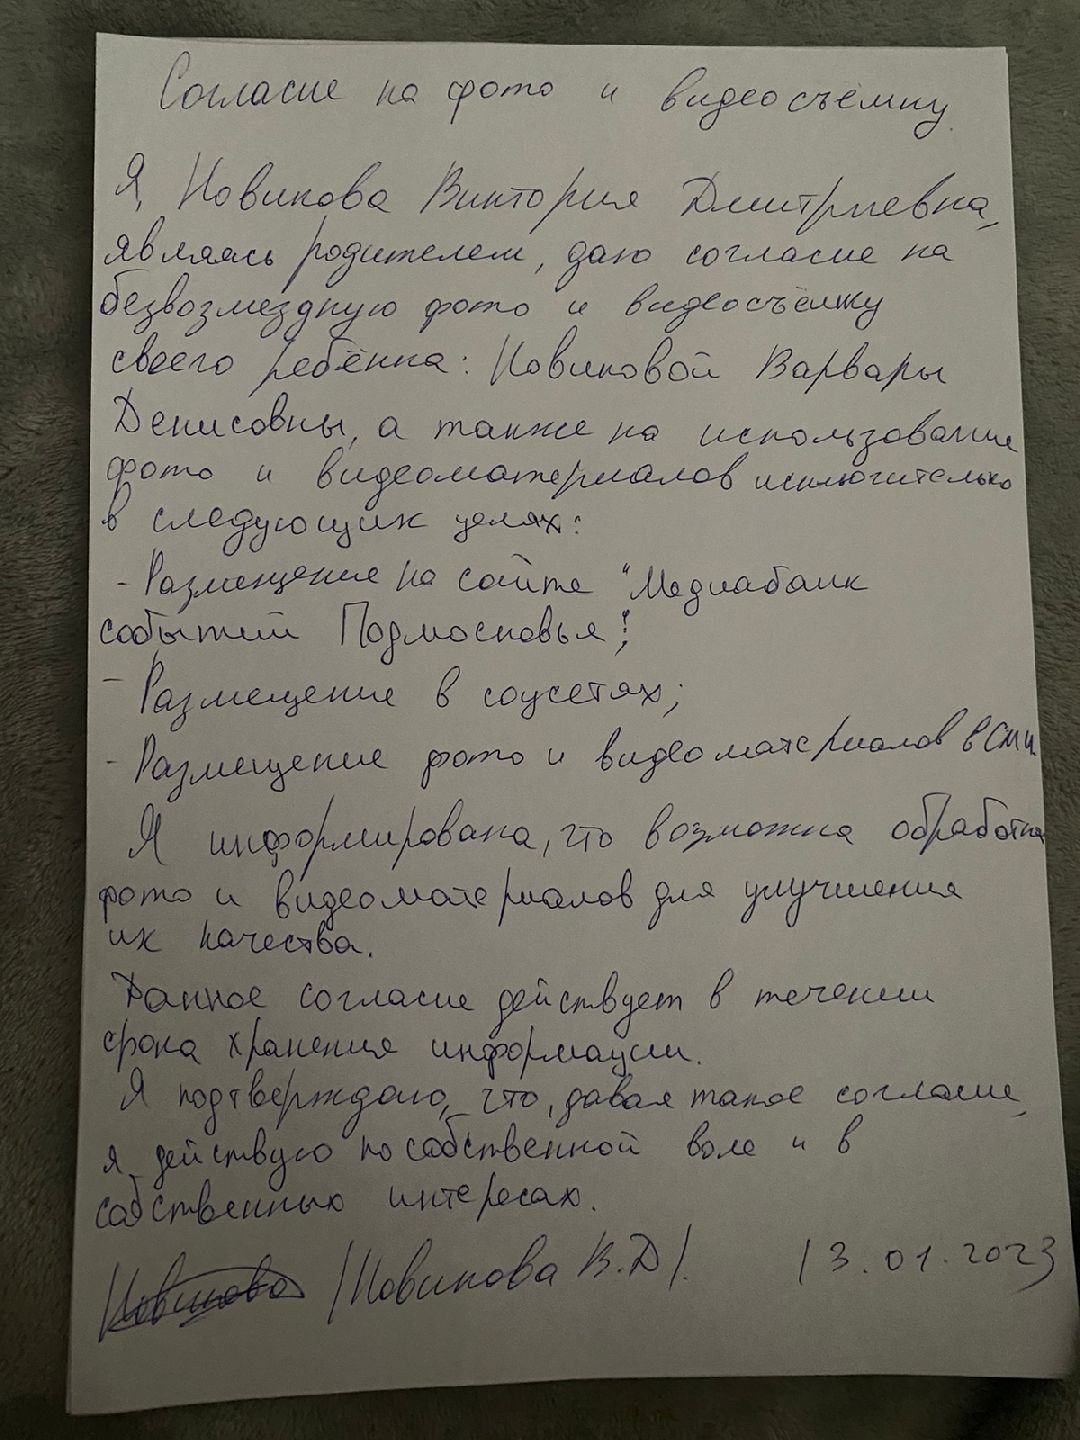 Согласие на фото и видеосъёмку.
Я, Новикова Виктория Дмитриевна,
являясь родителем, даю согласие на
безвозмездную фото и видеосъёмку
своего ребёнка: Новиковой Варвары
Денисовны, а также на использование
фото и видеоматериалов исключительно
в следующих целях:
- Размещение на сайте "Медиабанк
событий Подмосковья";
- Размещение в соцсетях;
- Размещение фото и видеоматериалов в СМИ
Я информирована, что возможна обработка
фото и видеоматериалов для улучшения
их качества.
Данное согласие действует в течении
срока хранения информации.
Я подтверждаю, что, давая такое согласие,
я действую по собственной воле и в
собственных интересах.
Новикова /Новикова В.Д/. 13.01.2023